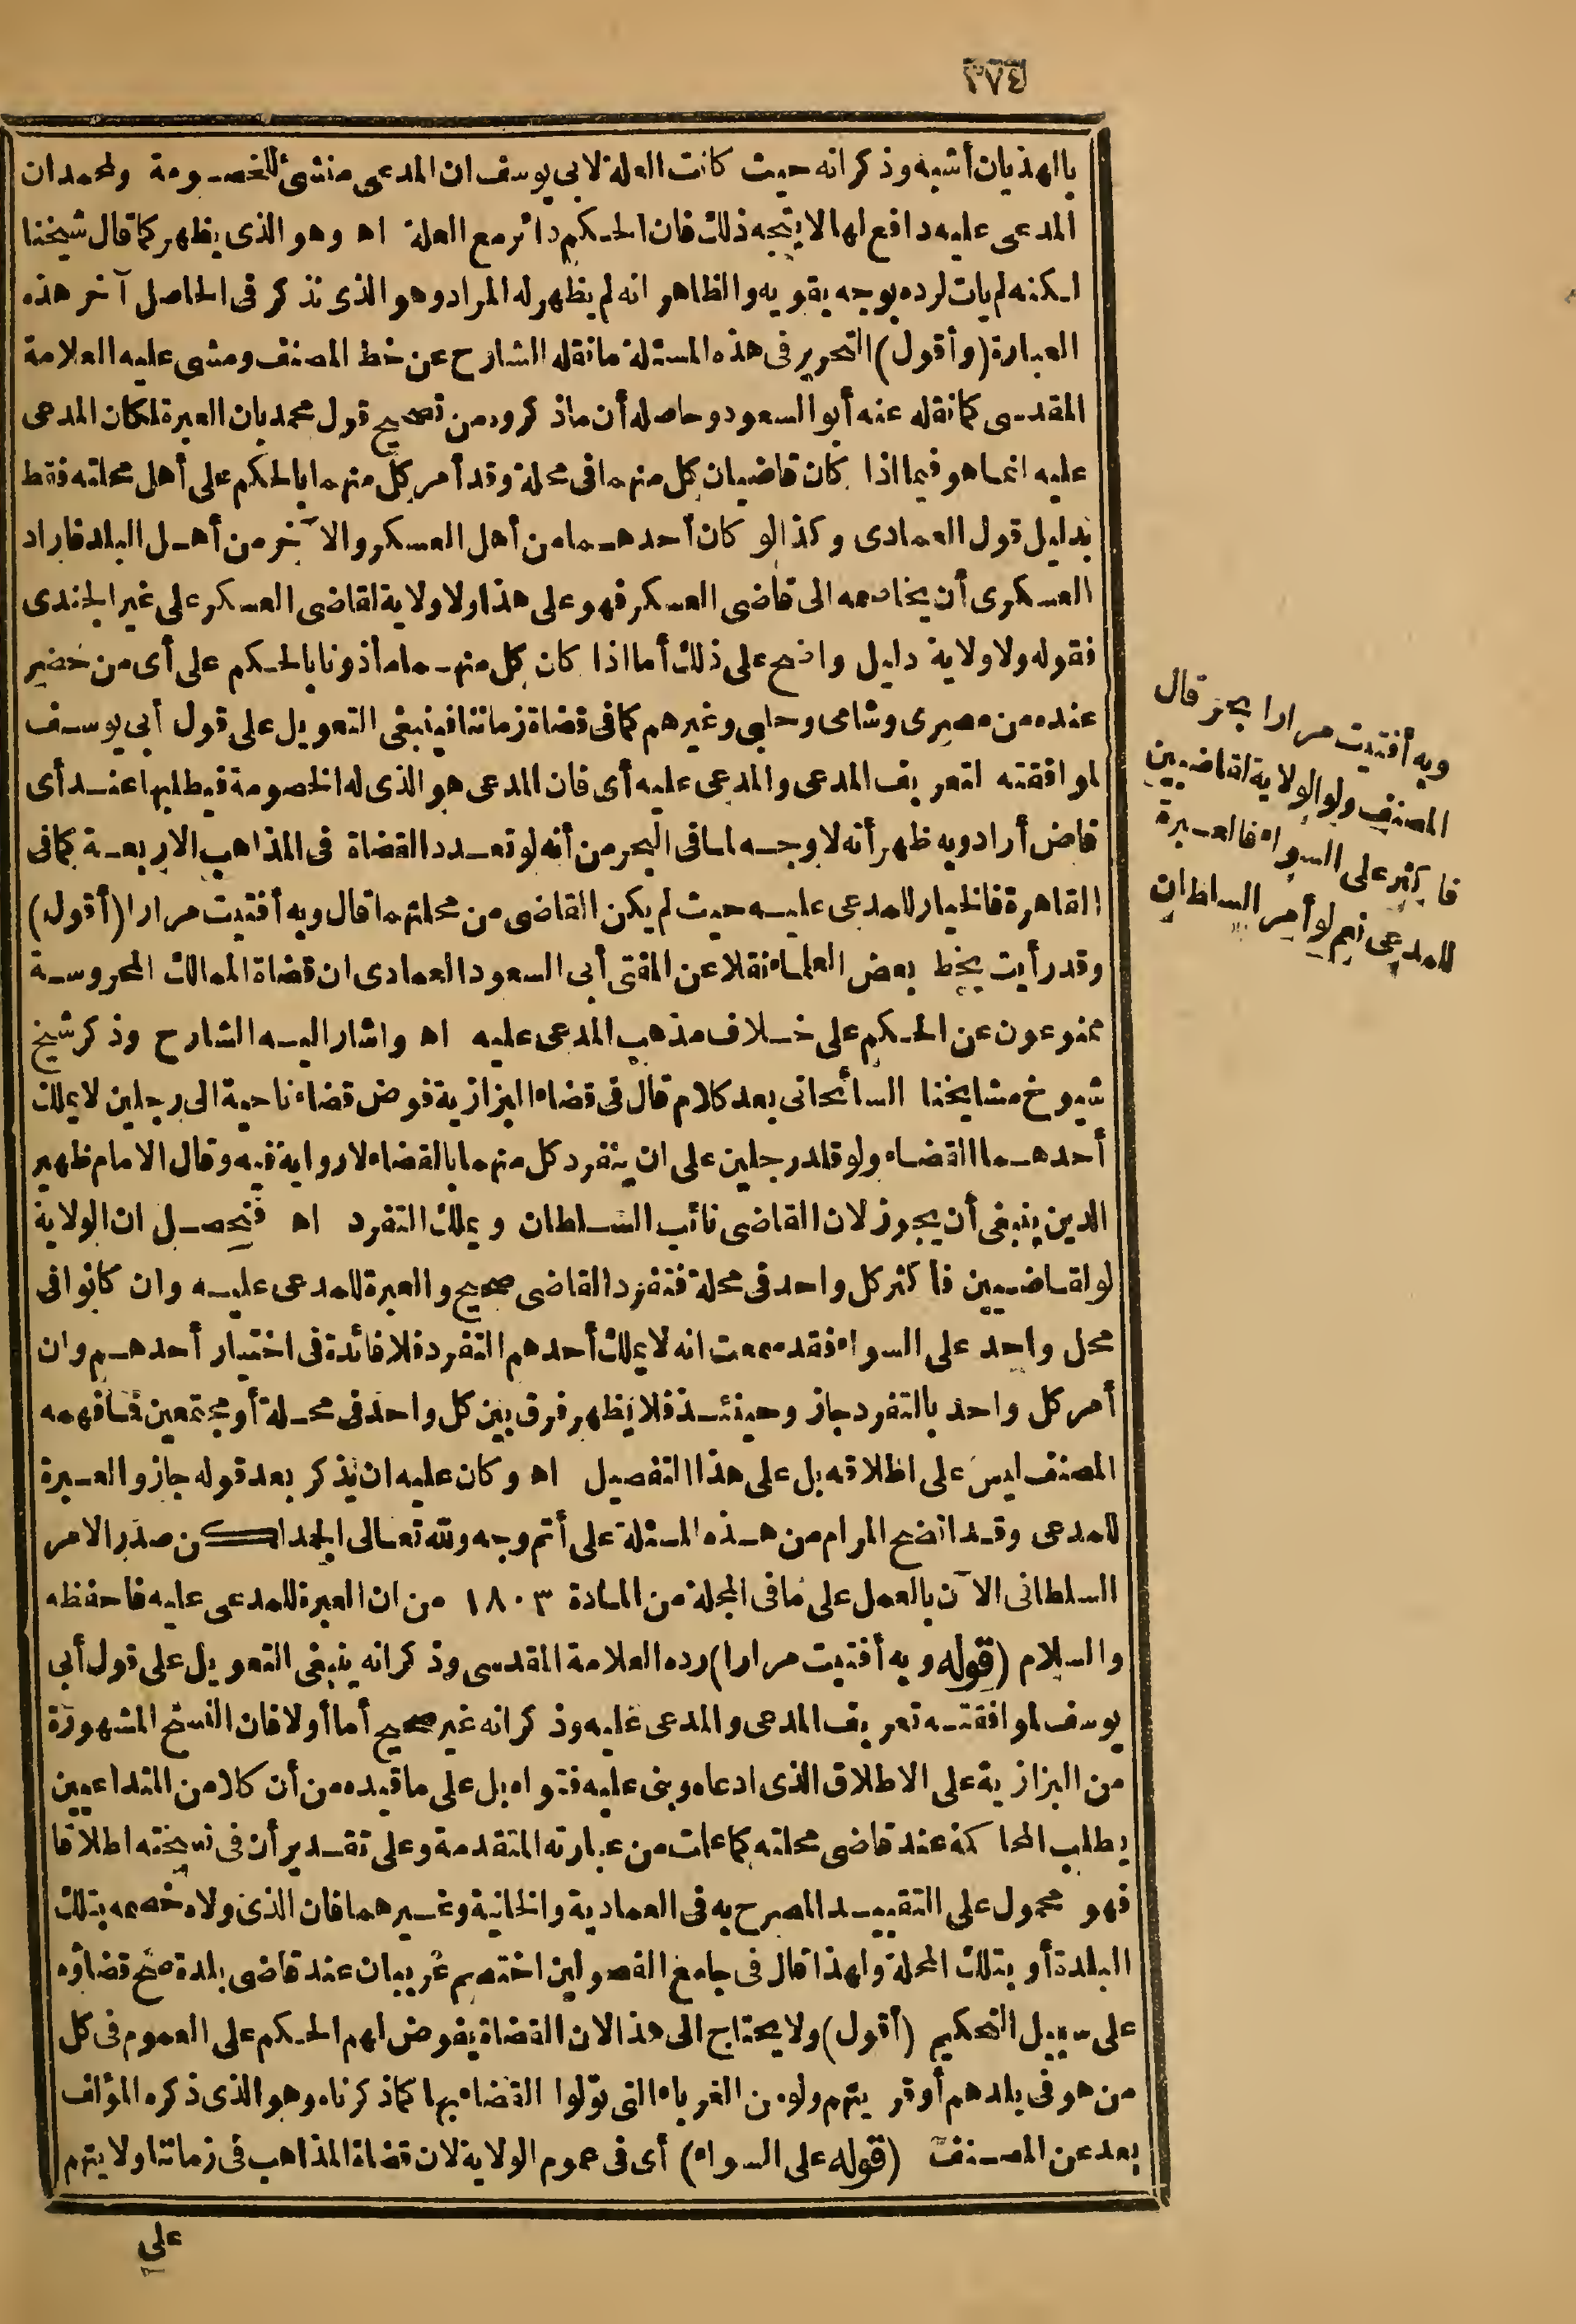 ٣٧٤
بالهذيان أشبه وذكر انه حيث كانت العلة لابي يوسف ان المدعى منشئ للخصومة ولمحمد ان
المدعى عليه دافع لها لا يتجه ذلك فان الحكم دائر مع العلة اه وهو الذى يظهر كما قال شيخنا
لكنه لم يات لرده بوجه يقويه والظاهر انه لم يظهر له المراد وهو الذى نذكر فى الحاصل آخر هذه
العبارة (وأقول) التحرير فى هذه المسئلة ما نقله الشارح عن خط المصنف ومشى عليه العلامة
المقدسى كما نقله عنه أبو السعود وحاصله أن ماذكروه من تصحيح قول محمد بان العبرة لمكان المدعى
عليه انما هو فيما اذا كان قاضيان كل منهما فى محلة وقد أمر كل منهما بالحكم على أهل محلته فقط
بدليل قول العمادى وكذا لو كان أحدهما من أهل العسكر والآخر من أهل البلد فاراد
العسكرى أن يخاصمه الى قاضى العسكر فهو على هذا ولا ولاية لقاضى العسكر على غير الجندى
فقوله ولا ولاية دليل واضح على ذلك أما اذا كان كل منهما مأذونا بالحكم على أى من حضر
عنده من مصرى وشامى وحلبى وغيرهم كما فى قضاة زماننا فينبغى التعويل على قول أبى يوسف
لموافقته لتعريف المدعى والمدعى عليه أى فان المدعى هو الذى له الخصومة فيطلبها عند أى
قاض أراد وبه ظهر أنه لا وجه لما فى البحر من أنه لو تعدد القضاة فى المذاهب الاربعة كما فى
القاهرة فالخيار للمدعى عليه حيث لم يكن القاضى من محلتهما قال وبه أفتيت مرارا (أقول)
وقد رأيت بخط بعض العلماء نقلا عن المفتى أبى السعود العمادى ان قضاة الممالك المحروسة
ممنوعون عن الحكم على خلاف مذهب المدعى عليه اه واشار اليه الشارح وذكر شيخ
شيوخ مشايخنا السائحانى بعد كلام قال فى قضاء البزازية فوض قضاء ناحية الى رجلين لا يملك
أحدهما القضاء ولو قلد رجلين على ان ينفرد كل منهما بالقضاء لا رواية فيه وقال الامام ظهير
الدين ينبغى أن يجوز لان القاضى نائب السلطان ويملك التفرد اه فتحصل ان الولاية
لو لقاضيين فأكثر كل واحد فى محلة فتفرد القاضى صحيح والعبرة للمدعى عليه وان كانوا فى
محل واحد على السواء فقد سمعت انه لا يملك أحدهم التفرد فلا فائدة فى اختيار أحدهم وان
أمر كل واحد بالتفرد جاز وحينئذ فلا يظهر فرق بين كل واحد فى محلة أو مجتمعين فما فهمه
المصنف ليس على اطلاقه بل على هذا التفصيل اه وكان عليه ان يذكر بعد قوله جاز والعبرة
للمدعى وقد اتضح المرام من هذه المسئلة على أتم وجه ولله تعالى الحمد لكن صدر الامر
السلطانى الآن بالعمل على ما فى المجلة من المادة ١٨٠٣ من ان العبرة للمدعى عليه فاحفظه
والسلام (قوله وبه أفتيت مرارا) رده العلامة المقدسى وذكر انه ينبغى التعويل على قول أبى
يوسف لموافقته تعريف المدعى والمدعى عليه وذكر انه غير صحيح أما أولا فان النسخ المشهورة
من البزازية على الاطلاق الذى ادعاه وبنى عليه فتواه بل على ما قيده من أن كلا من المتداعيين
يطلب المحاكمة عند قاضى محلته كما علمت من عبارته المتقدمة وعلى تقدير أن فى نسخته اطلاقا
فهو محمول على التقييد المصرح به فى العمادية والخانية وغيرهما فان الذى ولاه خصصه بتلك
البلدة أو بتلك المحلة ولهذا قال فى جامع الفصولين اختصم غريبان عند قاضى بلدة صح قضاؤه
على سبيل التحكيم (أقول) ولا يحتاج الى هذا لان القضاة يفوض لهم الحكم على العموم فى كل
من هو فى بلدهم أو قريتهم ولو من الغرباء التى تولوا القضاء بها كما ذكرناه وهو الذى ذكره المؤلف
بعد عن المصنف (قوله على السواء) أى فى عموم الولاية لان قضاة المذاهب فى زماننا ولايتهم
على
وبه أفتيت مرارا بحر قال
المصنف ولو الولاية لقاضيين
فاكثر على السواء فالعبرة
للمدعى نعم لو أمر السلطان